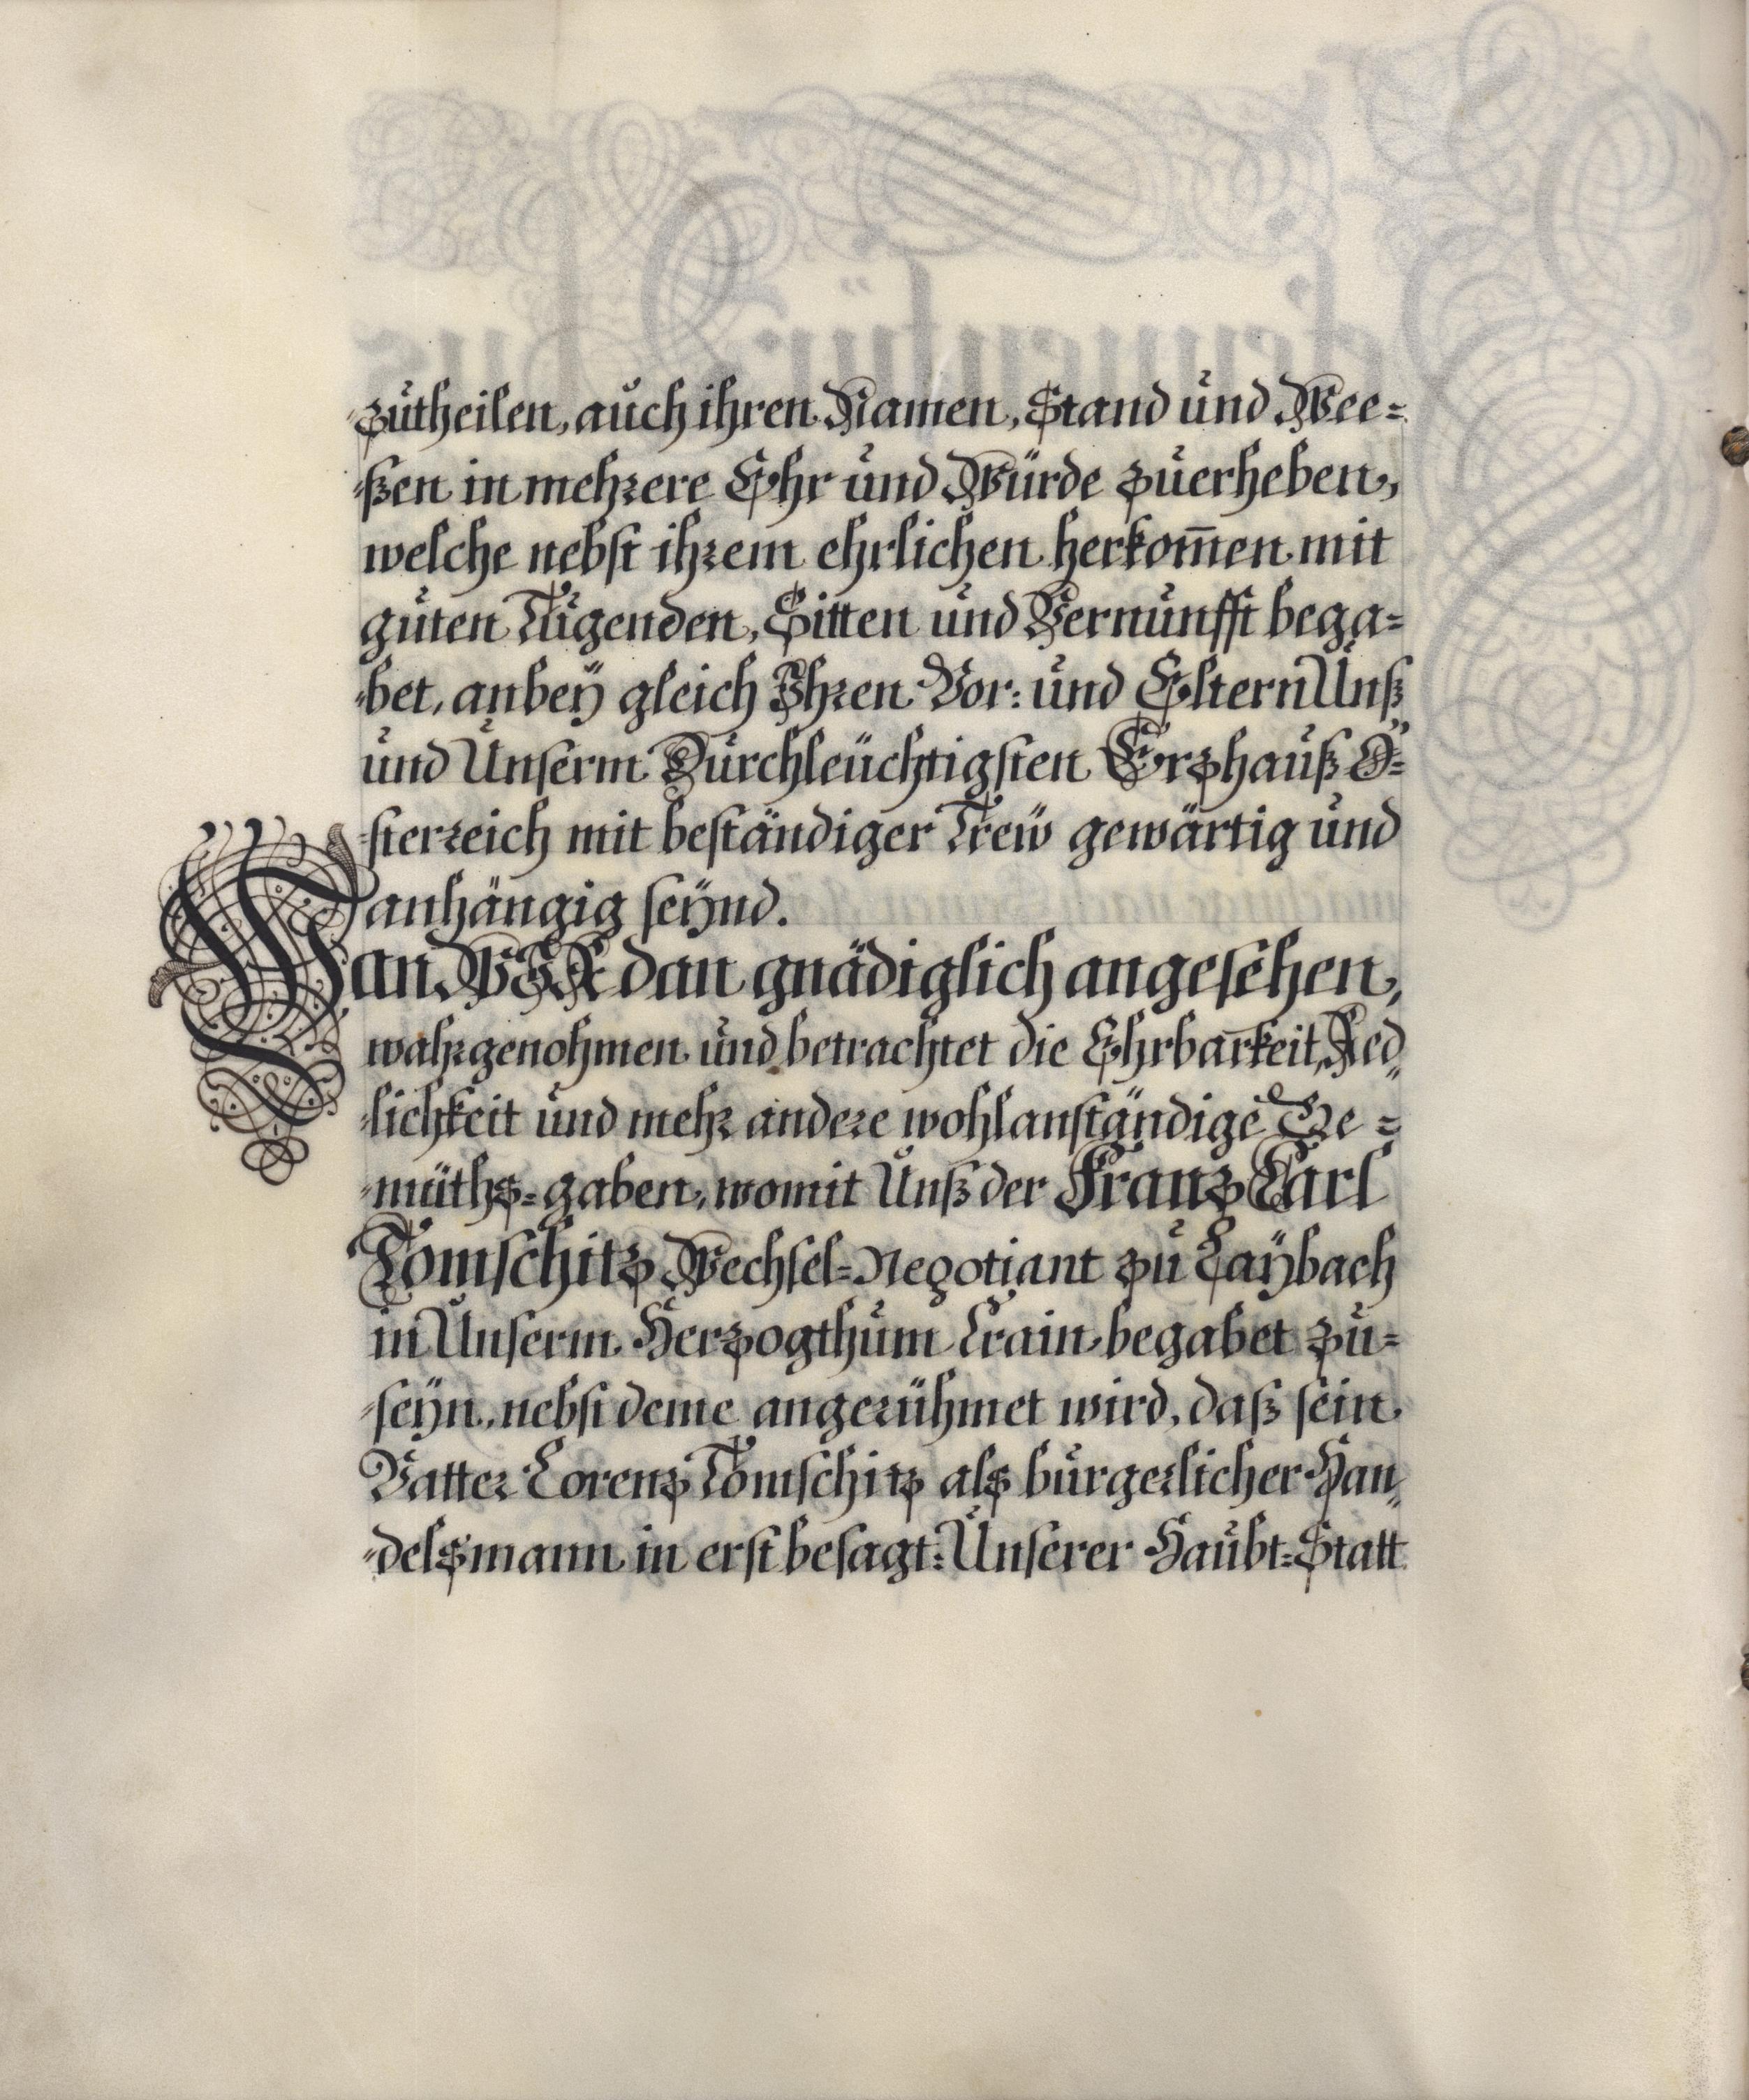 zutheilen, auch ihren Namen, Stand und Wee=
ßen in mehrere Ehr und Würde zuerheben,
welche nebst ihrem ehrlichen herkom̄en mit
guten Tugenden, Sitten und Vernunfft bega=
bet, anbeÿ gleich Ihren Vor: und Eltern Unß
und Unserm Durchleüchtigsten Ertzhauß Ö=
sterreich mit beständiger Treẅ gewärtig und
anhängig seÿnd.
Wan WIR dan gnädiglich angesehen,
wahrgenohmen und betrachtet die Ehrbarkeit, Red=
lichkeit und mehr andere wohlanständige Ge=
müths=gaben, womit Unß der Frantz Carl
Tomschitz Wechsel=Negotiant zu Laÿbach
in Unserm Herzogthum Crain begabet zu=
seÿn, nebst deme angerühmet wird, daß sein
Vatter Lorenz Tomschitz als burgerlicher Han=
delsmann in erst besagt: Unserer Haubt=Statt